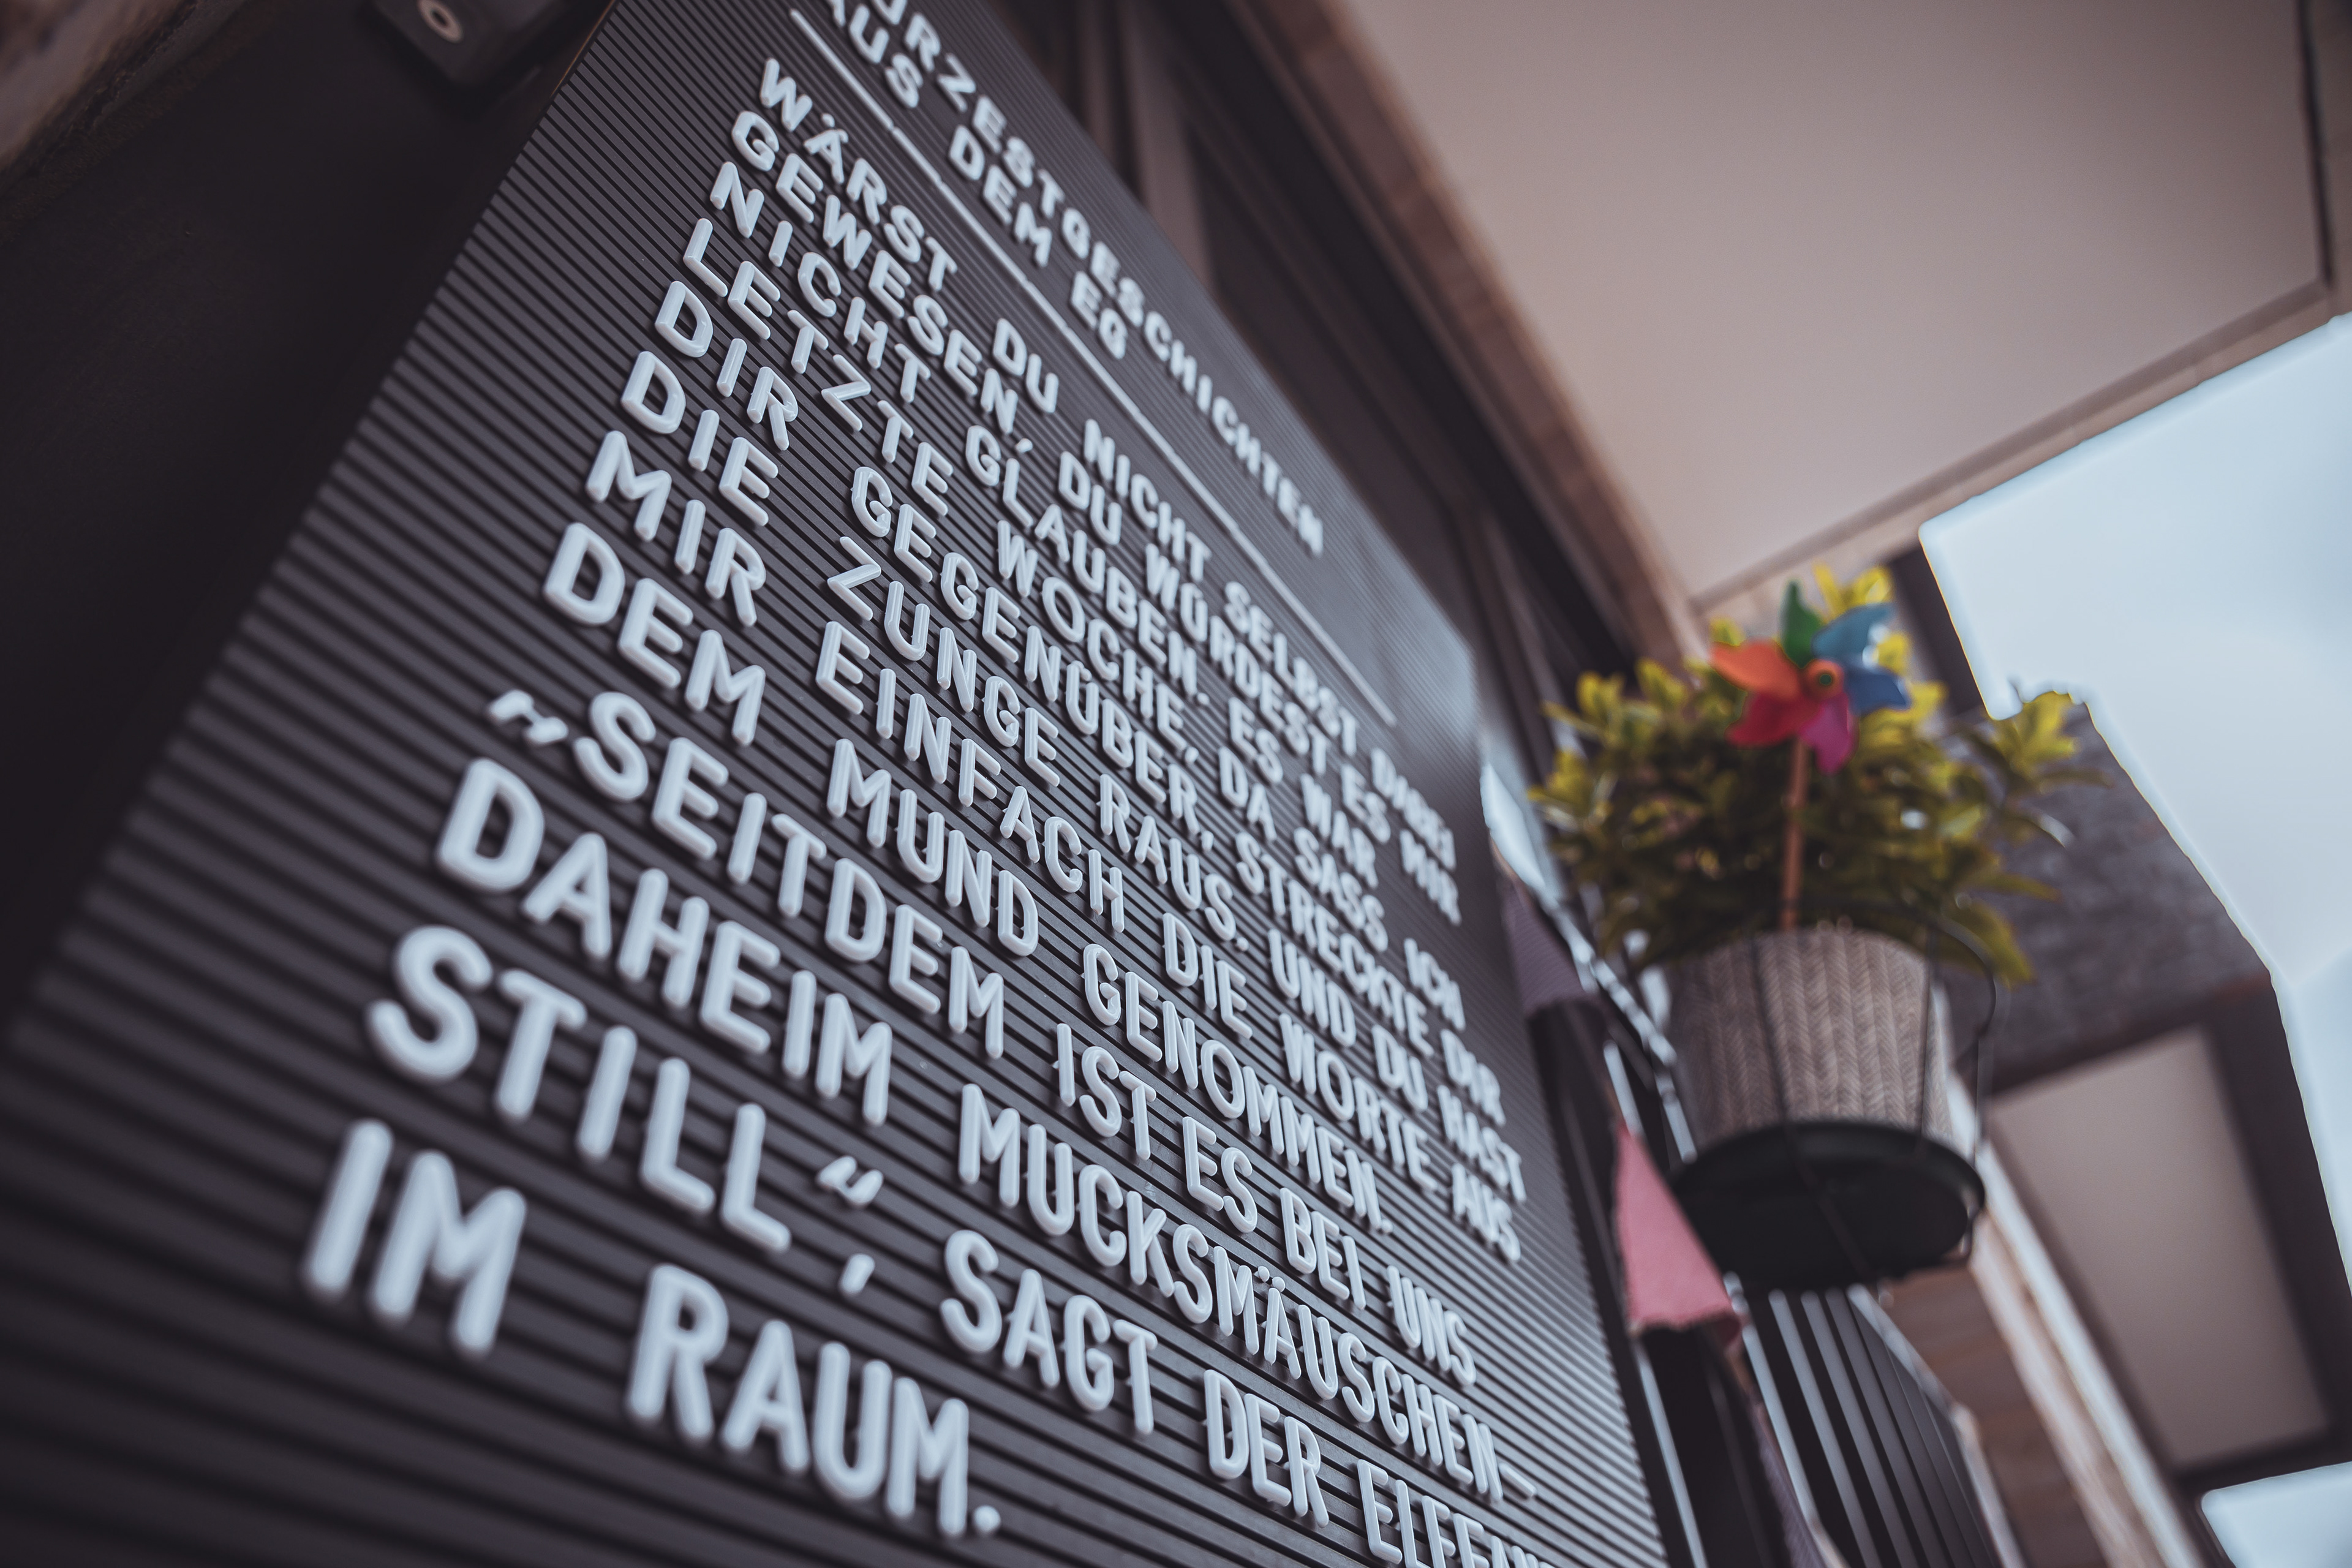 URZESTGESCHICHTEN
AUS DEM EG
WÄRST DU NICHT SELBST DABEI
GEWESEN, DU WÜRDEST ES MIR
NICHT GLAUBEN. ES WAR
LETZTE WOCHE, DA SASS ICH
DIR GEGENÜBER, STRECKTE DIR
DIE ZUNGE RAUS. UND DU HAST
MIR EINFACH DIE WORTE AUS
DEM MUND GENOMMEN.
„SEITDEM IST ES BEI UNS
DAHEIM MUCKSMÄUSCHEN-
STILL“, SAGT DER ELEFAN
IM RAUM.